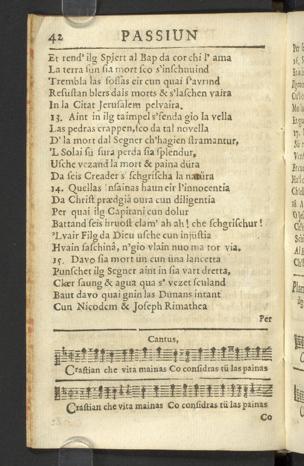 42 PASSIUN
Et rend' ilg Spjert al Bap da cor chi l' ama
La terra sün sia mort sco s'inschnuind
Trembla las fossas eir cun quai s'avrind
Resustan blers dals morts & s'laschen vaira
In la Citat Jerusalem pelvaira.
13. Aint in ilg taimpel s'fenda gio la vella
Las pedras crappen, sco da tal novella
D' la mort dal Segner ch'hagien stramantur,
'L Solai su sura perda sia splendur,
Usche vezand la mort & paina düra
Da seis Creader s'chgrischa la natüra
14. Quellas nsainas haun eir l'innocentia
Da Christ prædgiâ oura cun diligentia
Per quai ilg Capitani cun dolur
Battand seis bruost clam' ah ah! che schgrischur!
'L vair Filg da Dieu usche cun injustia
Hvain faschinâ, n'gio vlain nuo ma tor via.
15. Davo sia mort ün cun üna lancetta
Punschet ilg Segner aint in sia vart dretta,
Clær saung & agua qua s' vezet sculand
Baut davo quai gnin las Dunans intant
Cun Nicodem & Joseph Rimathea
Per
Cantus,
Crastian che vita mainas Co consídras tü las painas
Crastian che vita mainas Co consídras tü las painas
Co